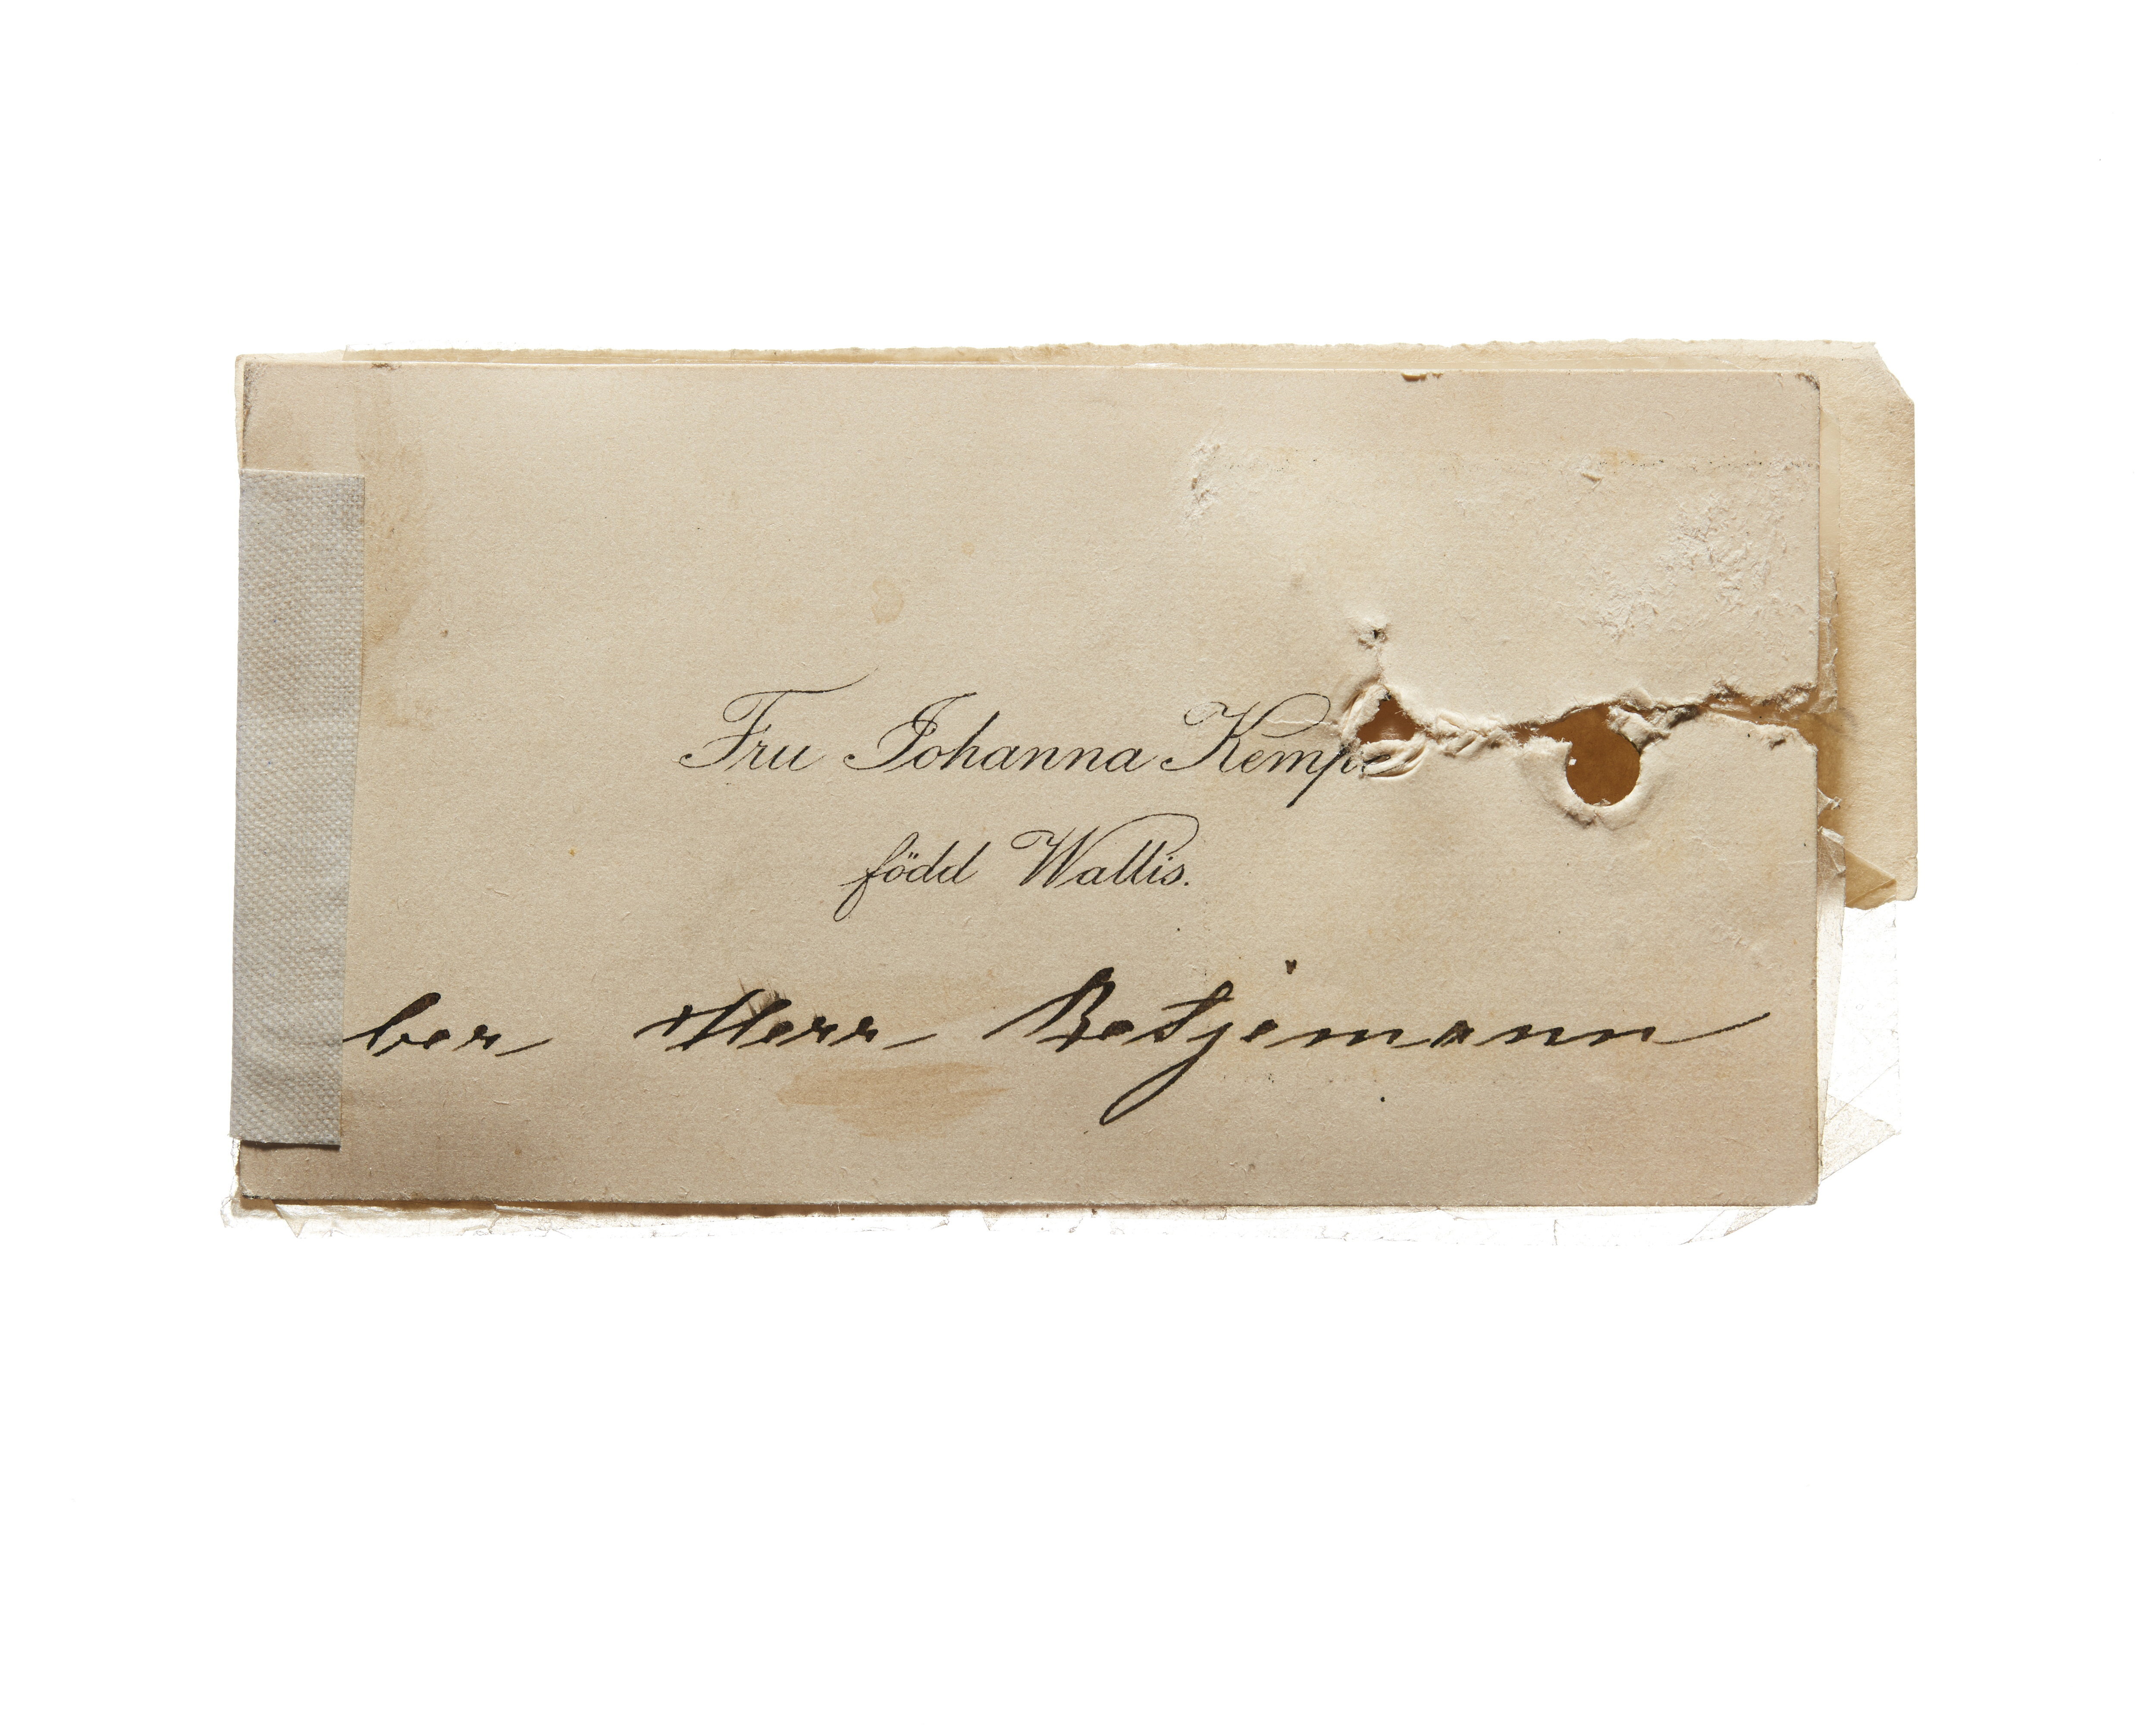 Fru Johanna Kempe
född Wallis.
ber Herr Betjemann